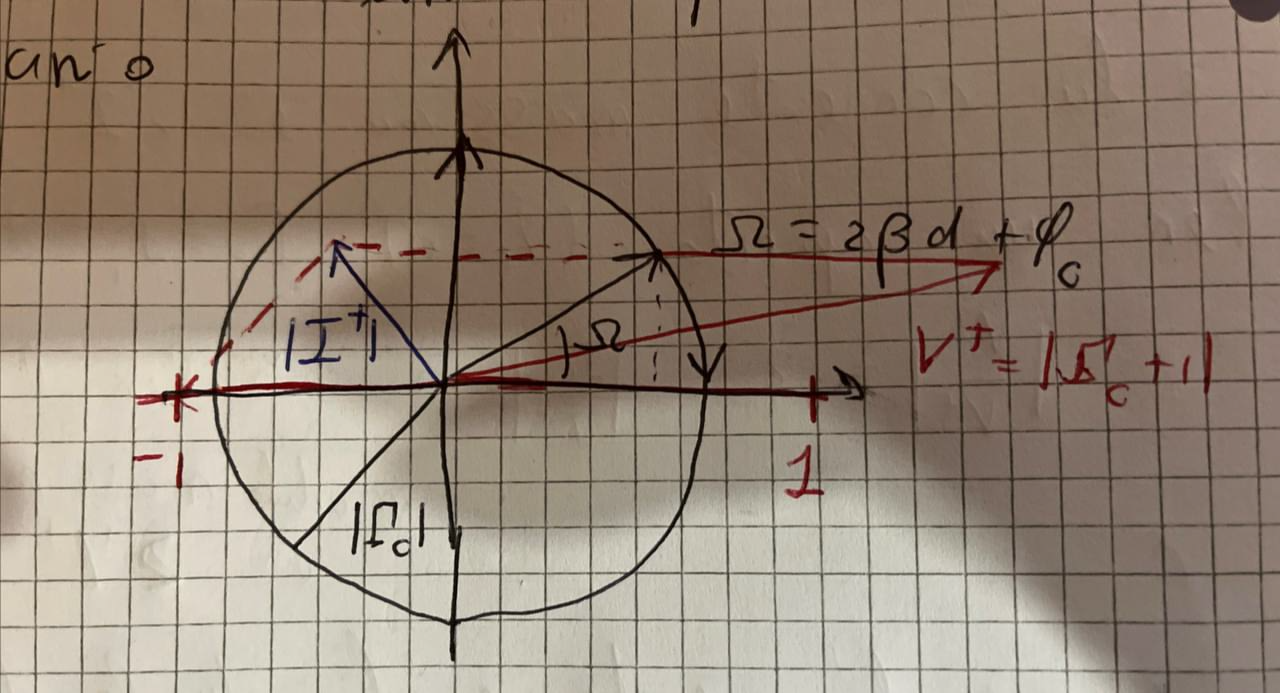 an o
Ω = 2βd + φ_c
|I⁺|
Ω
V⁺ = |Γ_c + 1|
-1
1
|Γ_c|